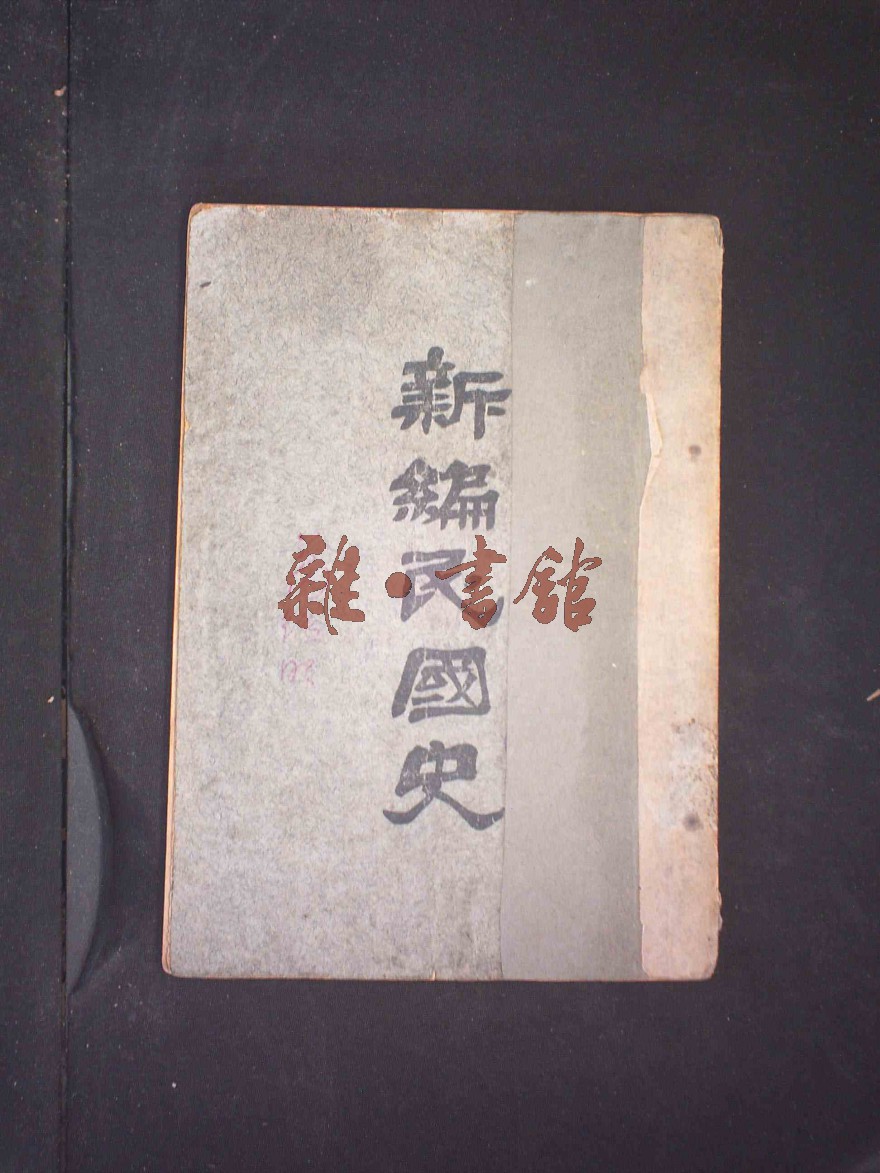 新編民國史
雜·書館